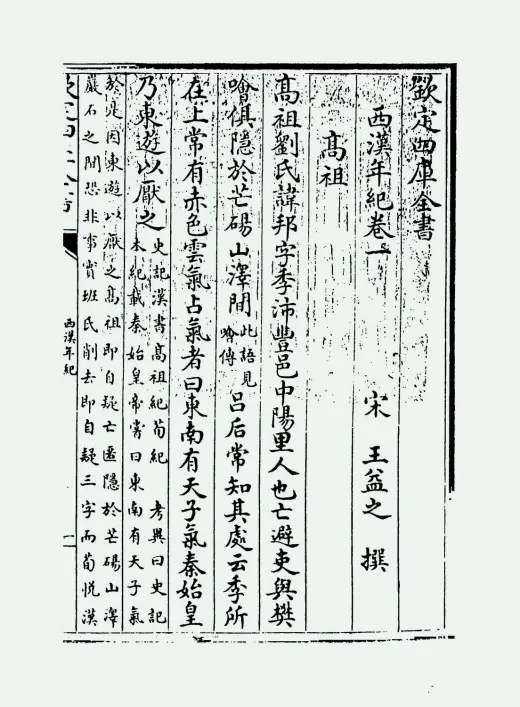 欽定四庫全書
西漢年紀卷一
宋 王益之 撰
高祖
高祖劉氏諱邦字季沛豐邑中陽里人也亡避吏與樊
噲俱隱於芒碭山澤間此語見噲傳吕后常知其處云季所
在上常有赤色雲氣占氣者曰東南有天子氣秦始皇
乃東遊以厭之史記漢書高祖紀荀紀 考異曰史記
本紀載秦始皇帝嘗曰東南有天子氣
於是因東遊以厭之高祖即自疑亡匿隱於芒碭山澤
巖石之間恐非事實班氏削去即自疑三字而荀悦漢
西漢年紀
一